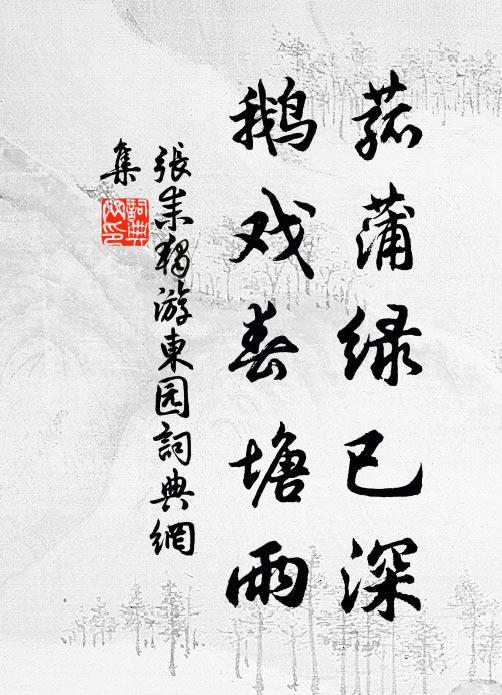 菰蒲绿已深
鹅戏春塘雨
張耒獨游東园詞典網
集
詞典
网印